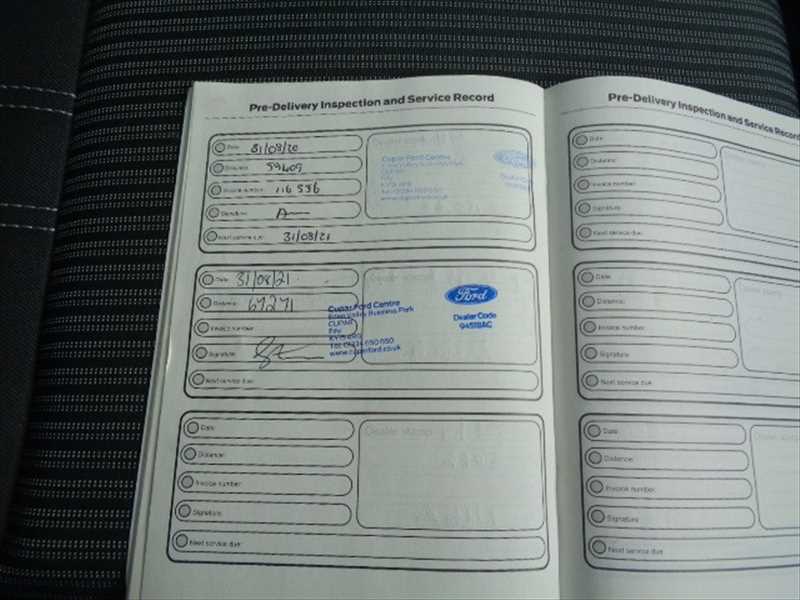 Pre-Delivery Inspection and Service Record
Date: 31/08/20
Distance: 59609
Invoice number: 116 556
Signature:
Next service due: 31/08/21
Dealer stamp
Cupar Ford Centre
Eden Valley Business Park
CUPAR
Fife
www.cuparford.co.uk
Ford
Dealer Code
Date: 31/08/21
Distance: 67271
Invoice number:
Signature:
Next service due:
Cupar Ford Centre
Eden Valley Business Park
CUPAR
Fife
www.cuparford.co.uk
Ford
Dealer Code
Date:
Distance:
Invoice number:
Signature:
Next service due:
Dealer stamp
Pre-Delivery Inspection and Service Record
Date:
Distance:
Invoice number:
Signature:
Next service due:
Date:
Distance:
Invoice number:
Signature:
Next service due:
Date:
Distance:
Invoice number:
Signature:
Next service due:
Dealer stamp